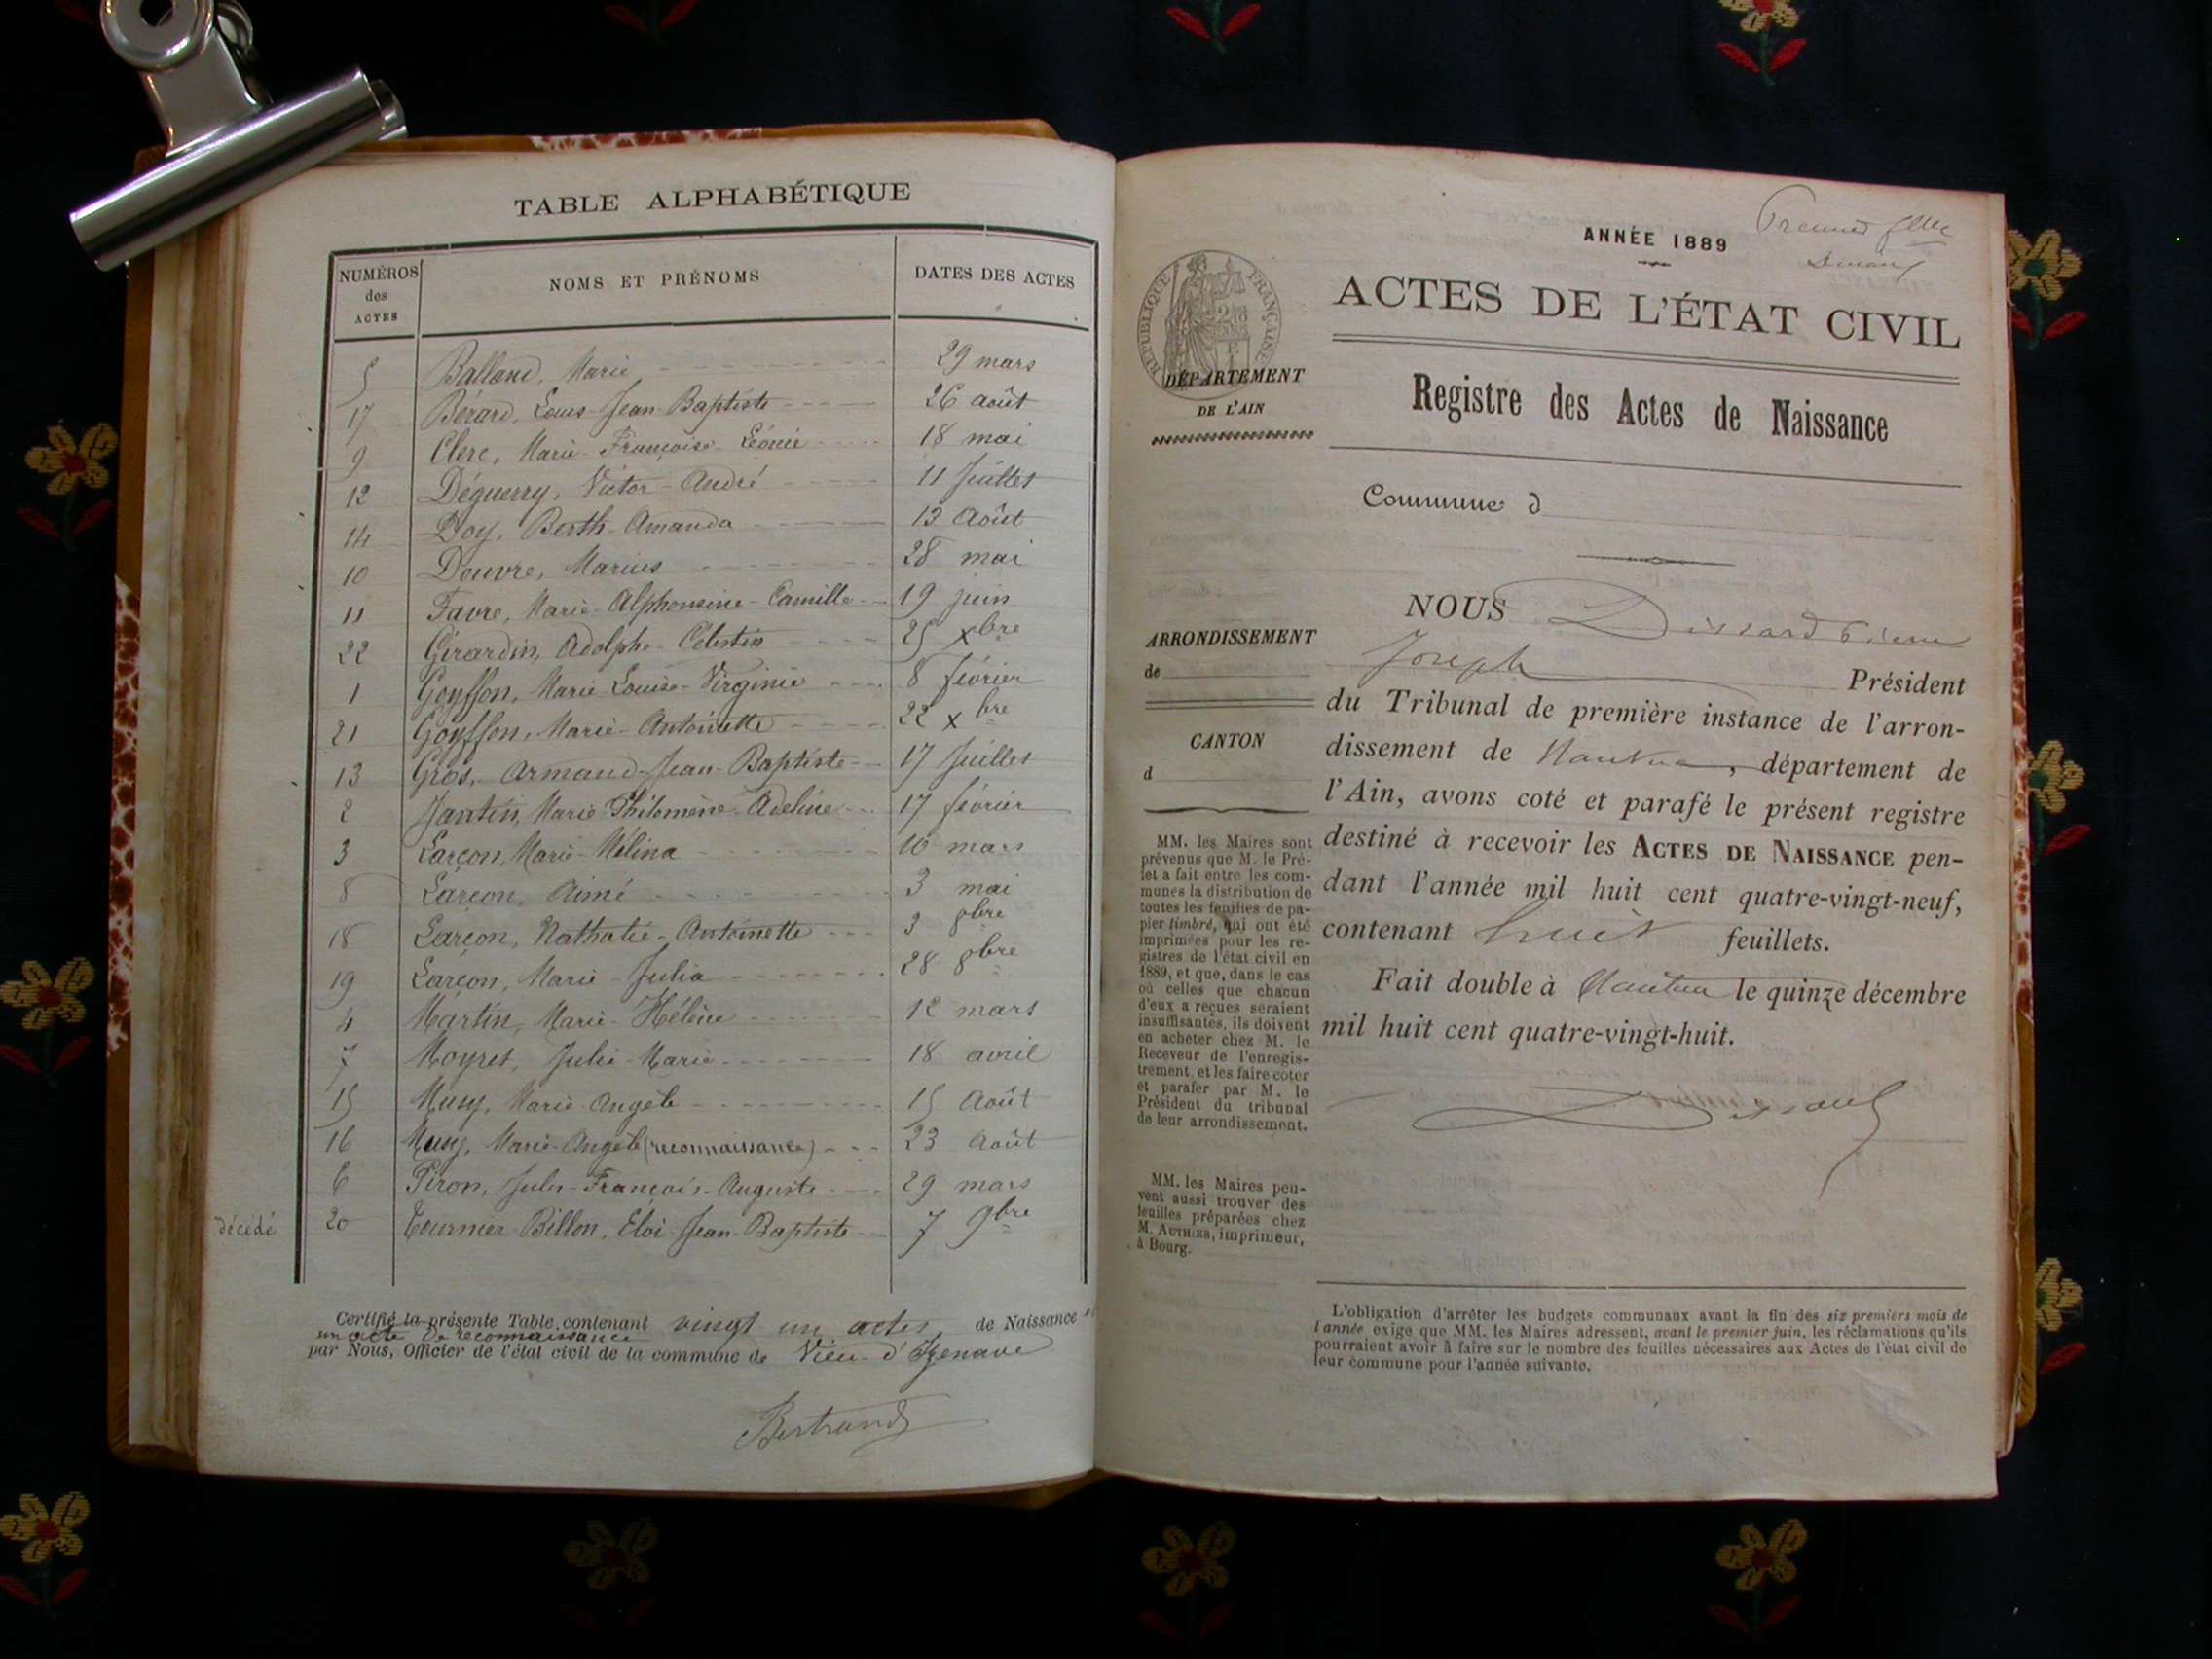 TABLE ALPHABÉTIQUE
NUMÉROS des ACTES NOMS ET PRÉNOMS DATES DES ACTES
5 Balland, Marie 29 mars
17 Bérard, Louis-Jean-Baptiste 26 août
9 Clerc, Marie-Françoise-Léonie 18 mai
12 Déguerry, Victor-André 11 Juillet
14 Doy, Berth-Amanda 13 Août
10 Douvre, Marius 28 mai
11 Favre, Marie-Alphonsine-Camille 19 juin
22 Girardin, Adolphe-Célestin 25 xbre
1 Goyffon, Marie Louise-Virginie 8 février
21 Goyffon, Marie-Antoinette 22 xbre
13 Gros, Armand-Jean-Baptiste 17 Juillet
2 Jantin, Marie Philomène-Adeline 17 février
3 Larçon, Marie-Mélina 10 mars
8 Larçon, Aimé 3 mai
18 Larçon, Nathalie-Antoinette 3 8bre
19 Larçon, Marie-Julia 28 8bre
4 Martin, Marie-Hélène 12 mars
7 Moyret, Julie-Marie 18 avril
15 Musy, Marie-Angèle 15 Août
16 Musy, Marie-Angèle (reconnaissance) 23 Août
6 Piron, Jules-François-Auguste 29 mars
décédé 20 Tournier-Billon, Eloi-Jean-Baptiste 7 9bre
Certifié la présente Table contenant vingt un actes de Naissance et
un acte de reconnaissance
par Nous, Officier de l'état civil de la commune de Vieu-d'Izenave
Bertrand
Premier
ANNÉE 1889
ACTES DE L'ÉTAT CIVIL
RÉPUBLIQUE FRANÇAISE
DÉPARTEMENT
DE L'AIN
Registre des Actes de Naissance
Commune d
ARRONDISSEMENT
de
CANTON
d
MM. les Maires sont
prévenus que M. le Pré-
fet a fait entre les com-
munes la distribution de
toutes les feuilles de pa-
pier timbré, qui ont été
imprimées pour les re-
gistres de l'état civil en
1889, et que, dans le cas
où celles que chacun
d'eux a reçues seraient
insuffisantes, ils doivent
en acheter chez M. le
Receveur de l'enregis-
trement et les faire coter
et parafer par M. le
Président du tribunal
de leur arrondissement.
MM. les Maires peu-
vent aussi trouver des
feuilles préparées chez
M. AUTHIER, imprimeur,
à Bourg.
NOUS Dissard Pierre
Joseph Président
du Tribunal de première instance de l'arron-
dissement de Nantua, département de
l'Ain, avons coté et parafé le présent registre
destiné à recevoir les ACTES DE NAISSANCE pen-
dant l'année mil huit cent quatre-vingt-neuf,
contenant huit feuillets.
Fait double à Nantua le quinze décembre
mil huit cent quatre-vingt-huit.
Dissard
L'obligation d'arrêter les budgets communaux avant la fin des six premiers mois de
l'année exige que MM. les Maires adressent, avant le premier juin, les réclamations qu'ils
pourraient avoir à faire sur le nombre des feuilles nécessaires aux Actes de l'état civil de
leur commune pour l'année suivante.